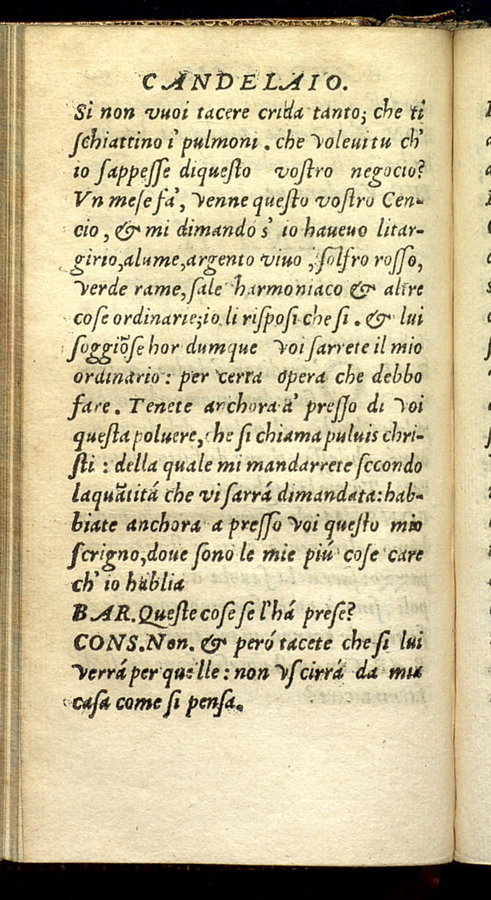 CANDELAIO.
Si non vuoi tacere crida tanto; che ti
ſchiattino i' pulmoni. che voleui tu ch'
io ſappeſſe di queſto voſtro negocio?
Vn meſe fà, venne queſto voſtro Cen-
cio, & mi dimandò s' io haueuo litar-
girio, alume, argento viuo, ſolfro roſſo,
verde rame, ſale harmoniaco & altre
coſe ordinarie; io li riſpoſi che ſi. & lui
ſoggiõſe hor dumque voi ſarrete il mio
ordinario: per certa opera che debbo
fare. Tenete anchora à preſſo di voi
queſta poluere, che ſi chiama puluis chri-
ſti: della quale mi mandarrete ſecondo
la quãtitá che vi ſarrá dimandata: hab-
biate anchora a preſſo voi queſto mio
ſcrigno, doue ſono le mie piú coſe care
ch' io habbia
BAR. Queſte coſe ſe l'há preſe?
CONS. Non. & peró tacete che ſi lui
verrá per quelle: non vſcirrá da mia
caſa come ſi penſa.